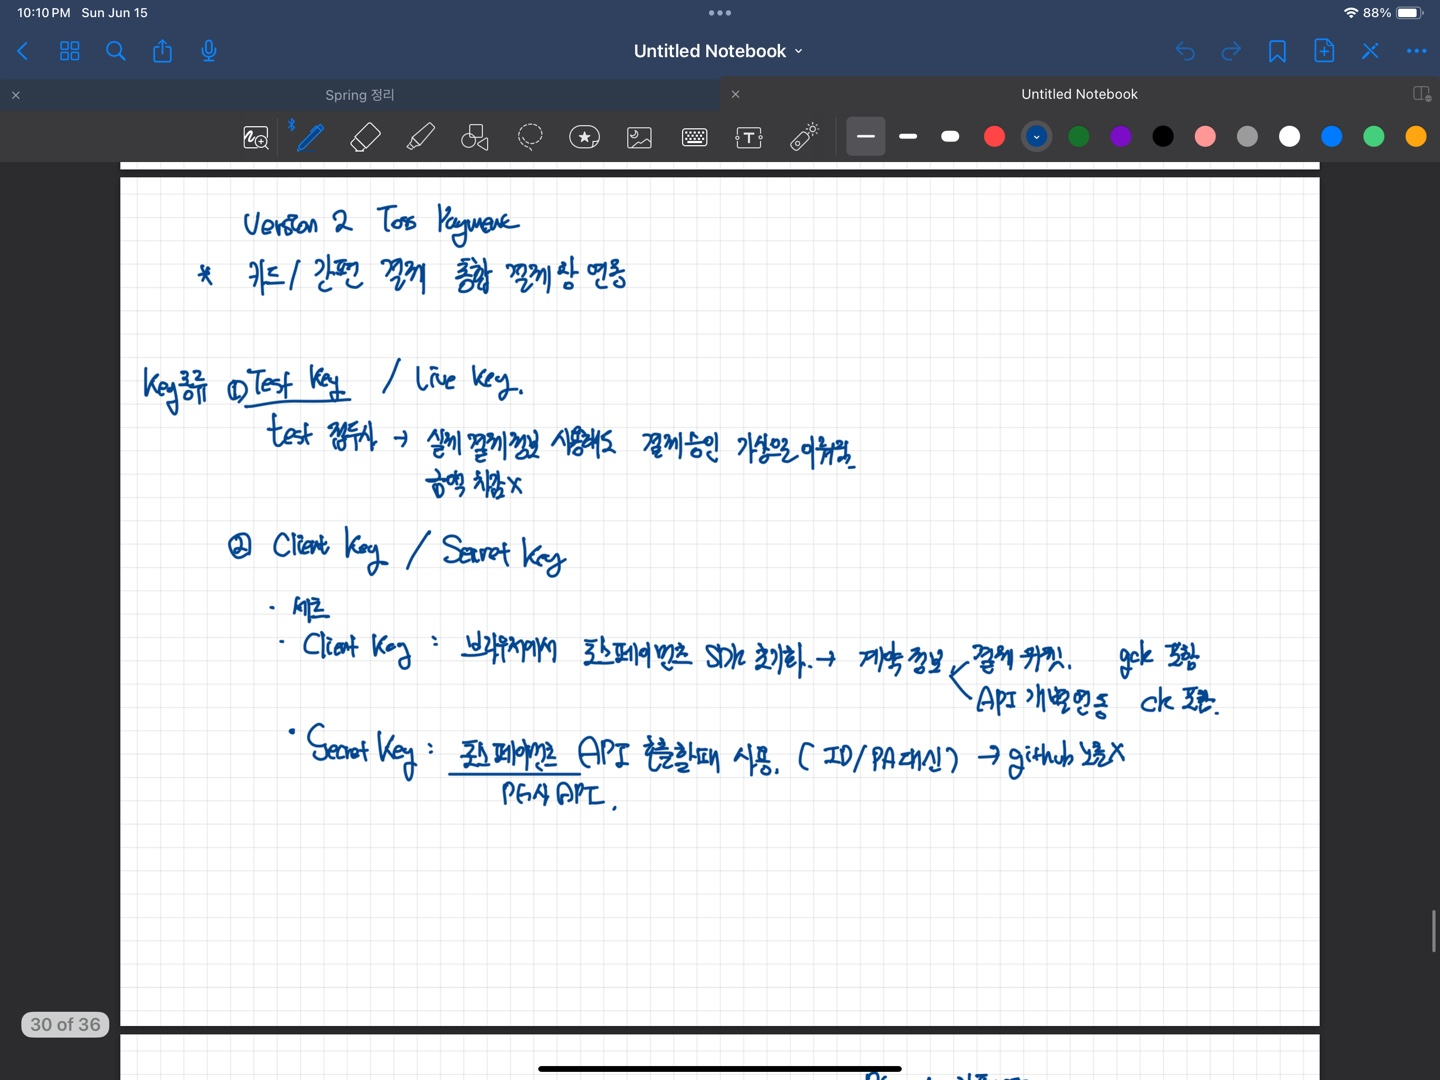 10:10 PM Sun Jun 15
88%
Untitled Notebook
Spring 정리
Untitled Notebook
Version 2 Toss Payment
* 카드/ 간편 결제 통합 결제창 연동
Key종류 ① Test Key / Live Key.
test 접두사 → 실제 결제정보 사용해도 결제승인 가상으로 이뤄짐
금액 차감X
② Client Key / Secret Key
· 세트
· Client Key : 브라우저에서 토스페이먼츠 SDK 초기화. → 계약 정보 결제 위젯. gck 포함
API 개별연동 ck 포함.
· Secret Key : 토스페이먼츠 API 호출할때 사용. ( ID/PA대신 ) → github 노출X
PG사 API.
30 of 36